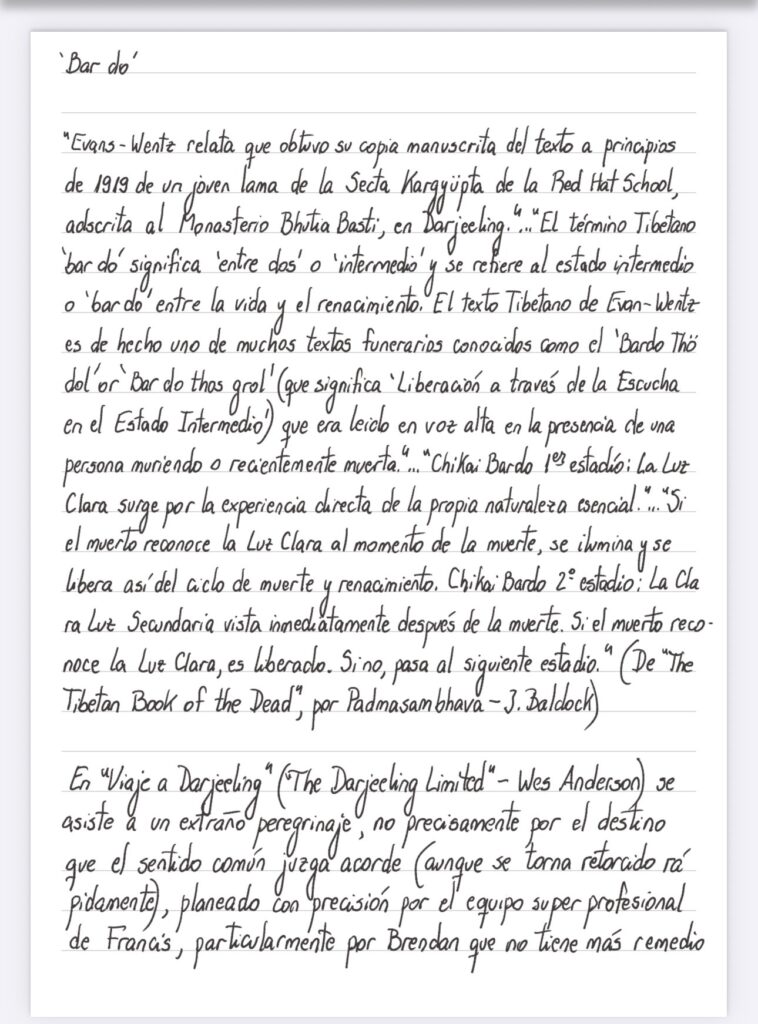 'Bar do'
"Evans-Wentz relata que obtuvo su copia manuscrita del texto a principios
de 1919 de un joven lama de la Secta Kargyüpta de la Red Hat School,
adscrita al Monasterio Bhutia Basti, en Darjeeling."..."El término Tibetano
'bar do' significa 'entre dos' o 'intermedio' y se refiere al estado intermedio
o 'bar do' entre la vida y el renacimiento. El texto Tibetano de Evan-Wentz
es de hecho uno de muchos textos funerarios conocidos como el 'Bardo Thö
dol' or 'Bar do thos grol' (que significa 'Liberación a través de la Escucha
en el Estado Intermedio') que era leido en voz alta en la presencia de una
persona muriendo o recientemente muerta."..."Chikai Bardo 1er estadío: La Luz
Clara surge por la experiencia directa de la propia naturaleza esencial."..."Si
el muerto reconoce la Luz Clara al momento de la muerte, se ilumina y se
libera así del ciclo de muerte y renacimiento. Chikai Bardo 2° estadio: La Cla
ra Luz Secundaria vista inmediatamente después de la muerte. Si el muerto reco-
noce la Luz Clara, es liberado. Si no, pasa al siguiente estadio." (De "The
Tibetan Book of the Dead", por Padmasambhava - J. Baldock)
En "Viaje a Darjeeling" ("The Darjeeling Limited" - Wes Anderson) se
asiste a un extraño peregrinaje, no precisamente por el destino
que el sentido común juzga acorde (aunque se torna retorcido rá
pidamente), planeado con precisión por el equipo super profesional
de Francis, particularmente por Brendan que no tiene más remedio